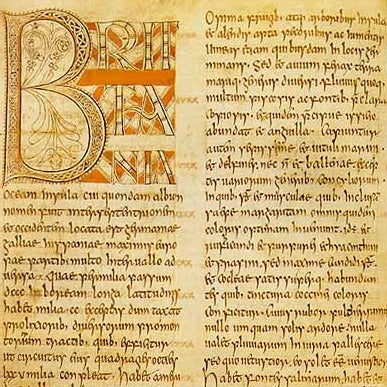 BRIT
TA
NIA
Oceani insula cui quondam albion
nomen fuit inter septentrionem
et occidentem locata est germaniae
galliae hispaniae maximis euro
pae partibus multo intervallo ad
versa. Quae per milia passuum
dccc in boream longa latitudinis
habet milia cc exceptis dum taxat
prolixioribus diversorum promon
toriorum tractibus quibus efficitur
ut circuitus eius quadragies octies
lxxv milia conpleat. Habet a meri
Opima frugib. atq. arboribus insula
et alendis apta pecoribus ac iumentis
vineas etiam quibusdam in locis ger
minans. Sed et avium ferax terra
mariq. generis diversi fluviis quoq.
multum piscosis ac fontib. praeclara
copiosis. et quidem praecipue issicio
abundat et anguilla. Capiuntur
autem saepissime et vituli marini
et delfines nec non et ballenae excep
tis variorum generib. concyliorum
in quib. sunt et musculae quib. inclusam
saepe margaritam omnis quidem
coloris optimam inveniunt. id est
et rubicundi et purpurei et hyacintini
et prasini sed maxime candidi. sunt
et cocleae satis superq. habundantes
quib. tinctura coccinei coloris
conficitur. Cuius rubor pulcherrimus
nullo umquam solis ardore nulla
valet pluviarum iniuria pallescere
sed quo vetustior eo solet esse venustior